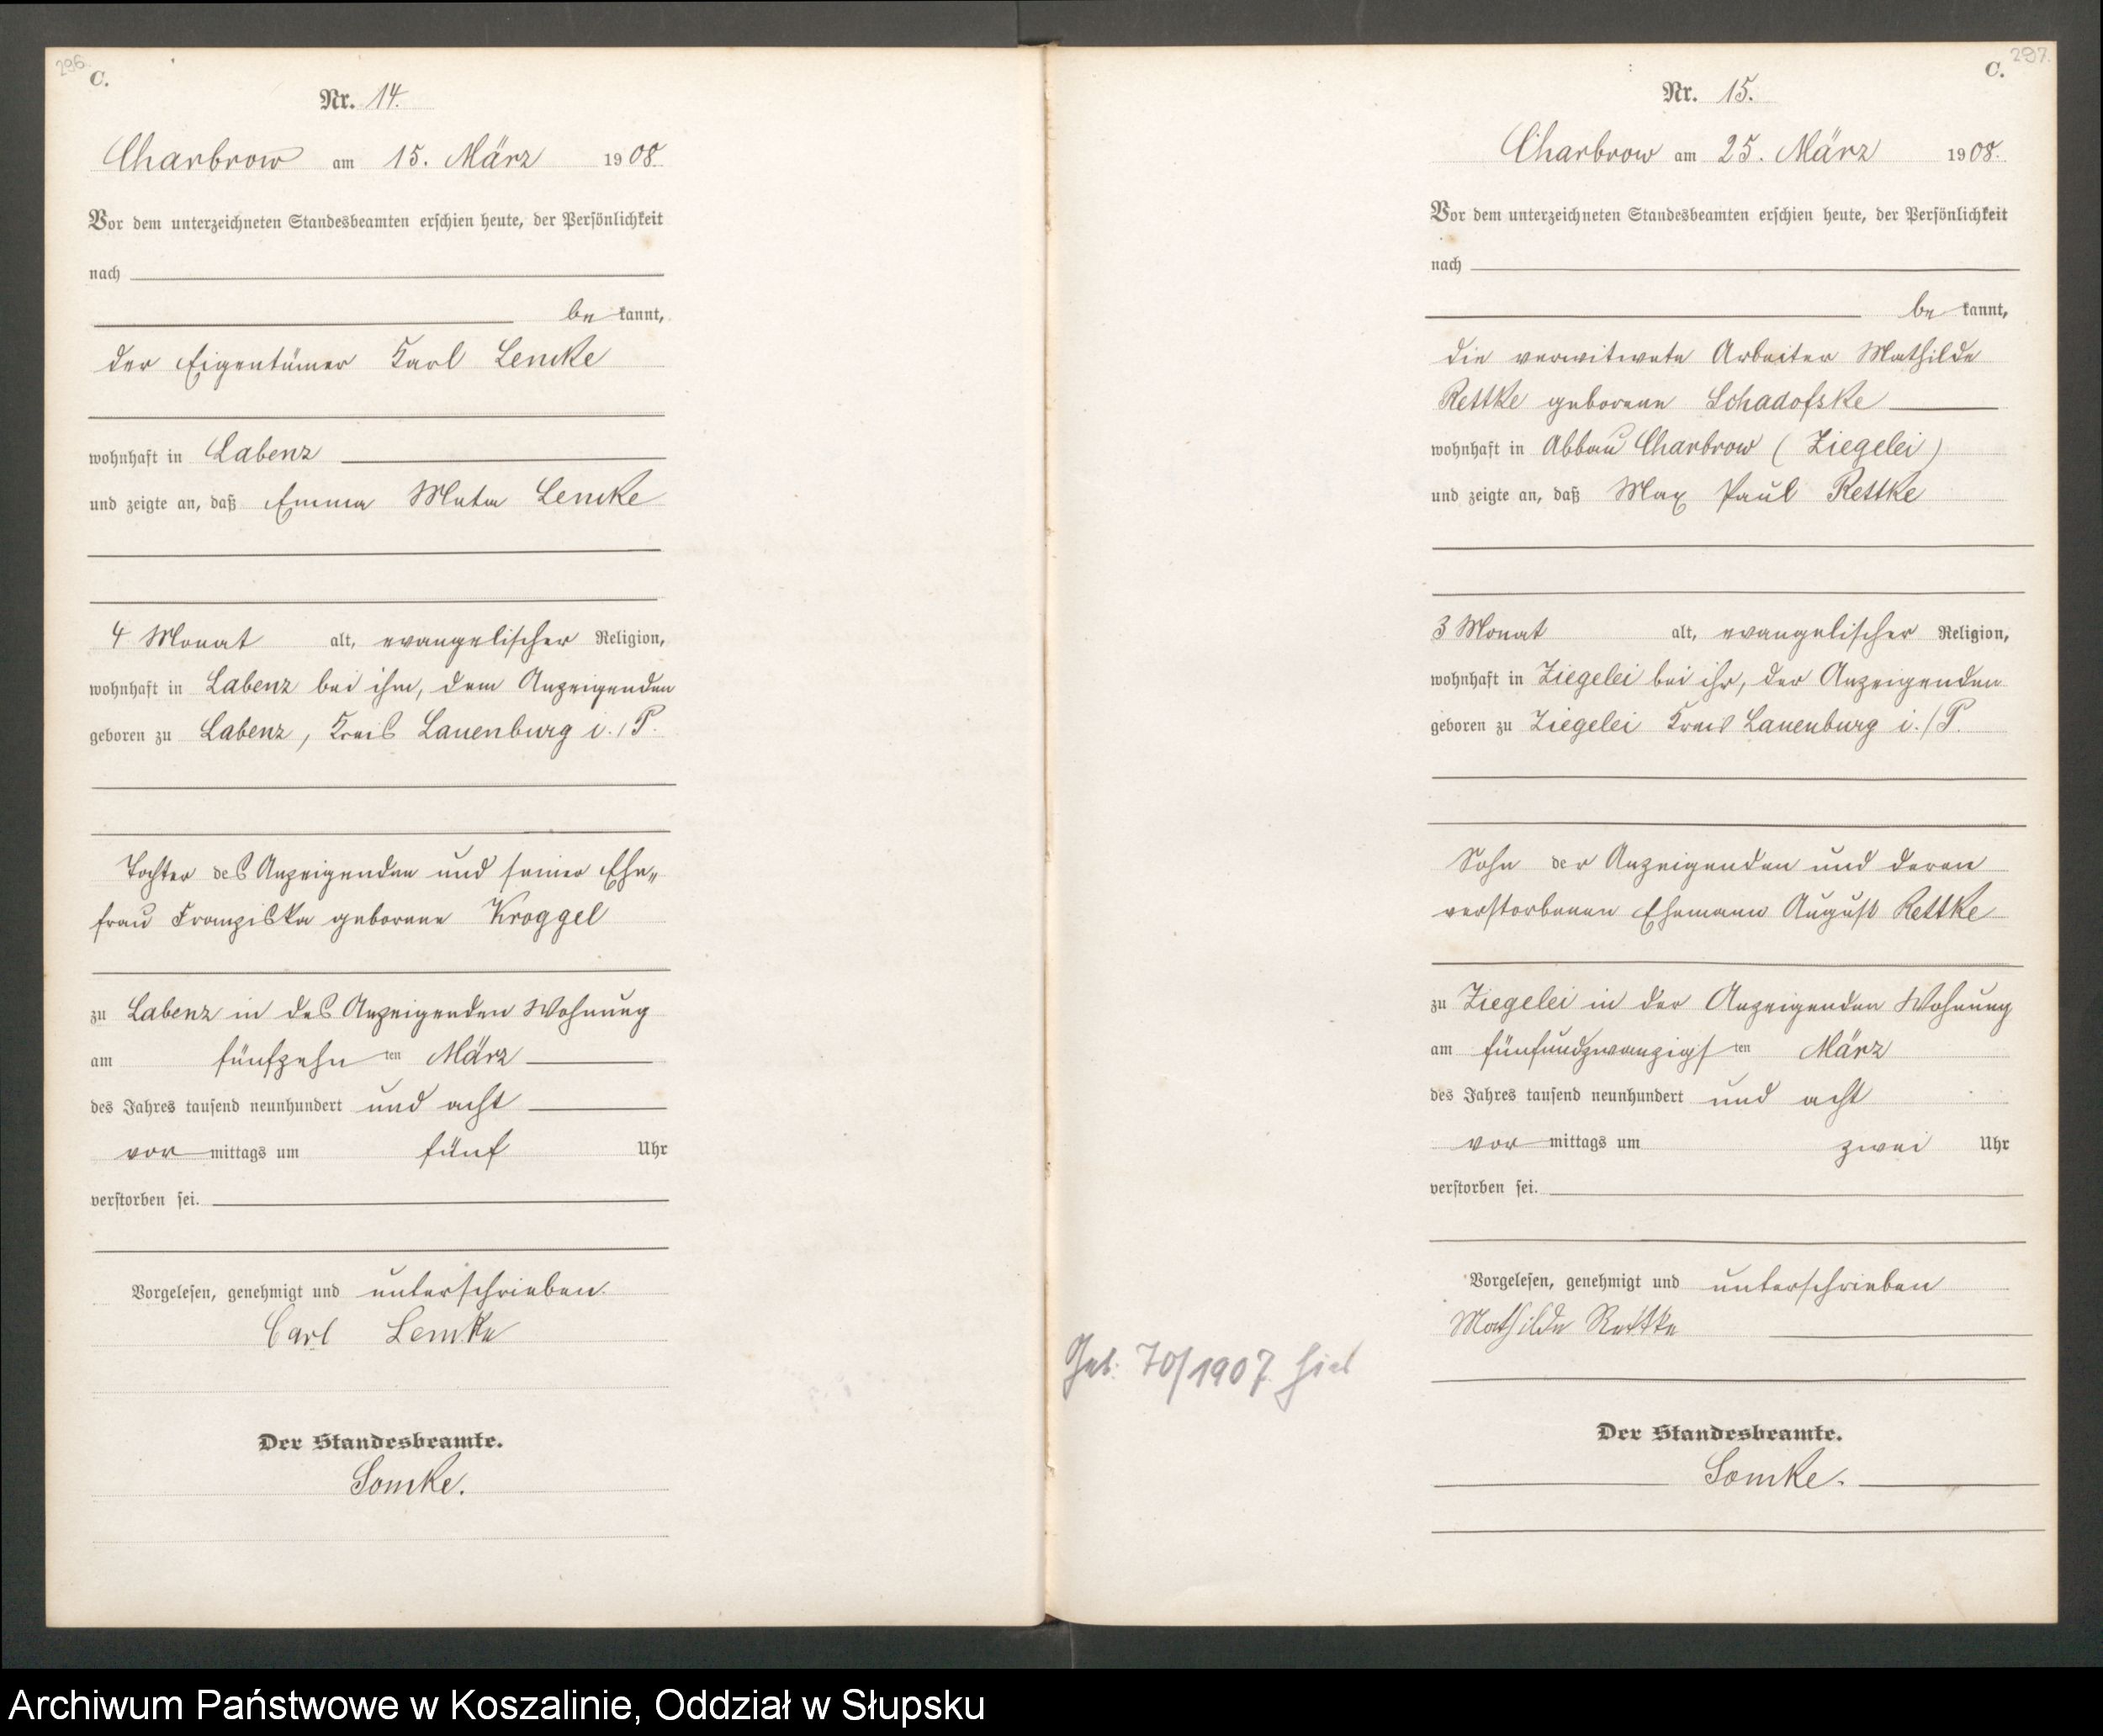 296.
C.
Nr. 14.
Charbrow am 15. März 1908.
Vor dem unterzeichneten Standesbeamten erschien heute, der Persönlichkeit
nach
be kannt,
der Eigentümer Karl Lemke
wohnhaft in Labenz
und zeigte an, daß Emma Meta Lemke
4 Monat alt, evangelischer Religion,
wohnhaft in Labenz bei ihm, dem Anzeigenden
geboren zu Labenz, Kreis Lauenburg i./P.
Tochter des Anzeigenden und seiner Ehe„
frau Franziska geborene Kroggel
zu Labenz in des Anzeigenden Wohnung
am fünfzehn ten März
des Jahres tausend neunhundert und acht
vor mittags um fünf Uhr
verstorben sei.
Vorgelesen, genehmigt und unterschrieben.
Carl Lemke
Der Standesbeamte.
Somke.
297.
C.
Nr. 15.
Charbrow am 25. März 1908.
Vor dem unterzeichneten Standesbeamten erschien heute, der Persönlichkeit
nach
be kannt,
die verwitwete Arbeiter Mathilde
Rettke geborene Schadofske
wohnhaft in Abbau Charbrow (Ziegelei)
und zeigte an, daß Max Paul Rettke
3 Monat alt, evangelischer Religion,
wohnhaft in Ziegelei bei ihr, der Anzeigenden
geboren zu Ziegelei Kreis Lauenburg i./P.
Sohn der Anzeigenden und deren
verstorbenen Ehemann August Rettke
zu Ziegelei in der Anzeigenden Wohnung
am fünfundzwanzigs ten März
des Jahres tausend neunhundert und acht
vor mittags um zwei Uhr
verstorben sei.
Vorgelesen, genehmigt und unterschrieben
Mathilde Rettke
Geb. 70/1907 hier
Der Standesbeamte.
Somke.
Archiwum Państwowe w Koszalinie, Oddział w Słupsku